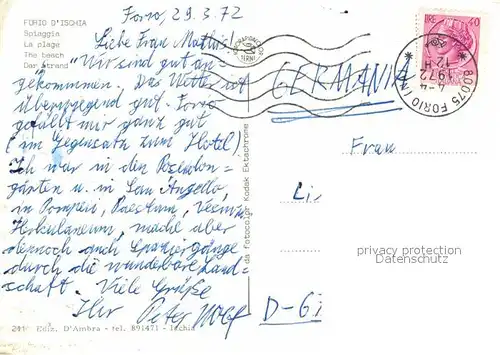 FORIO D'ISCHIA
Spiaggia
La plage
The beach
Der Strand
Forio, 29.3.72
Liebe Frau Mathis!
Wir sind gut an-
gekommen. Das Wetter ist
überwiegend gut. Forio
gefällt mir ganz gut
(im Gegensatz zum Hotel).
Ich war in den Poseidon-
gärten u. in San Angello,
in Pompeji, Paestum, Vesuv,
Herkulaneum, mache aber
dennoch auch Spaziergänge
durch die wunderbare Land-
schaft. Viele Grüße
Ihr Peter Wolf
Ediz. D'Ambra - tel. 891471 - Ischia
da fotocolor Kodak Ektachrome
LIRE 40
80075 FORIO
4-4
1972
12 H
GERMANIA
Frau
Li
D-Gi
privacy protection
Datenschutz